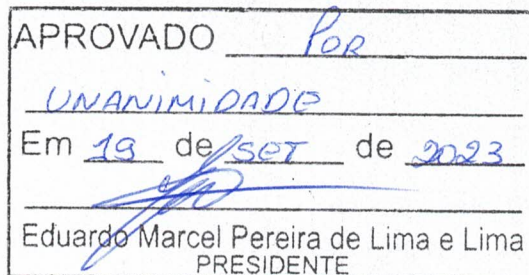 APROVADO POR
UNANIMIDADE
Em 19 de SET de 2023
Eduardo Marcel Pereira de Lima e Lima
PRESIDENTE